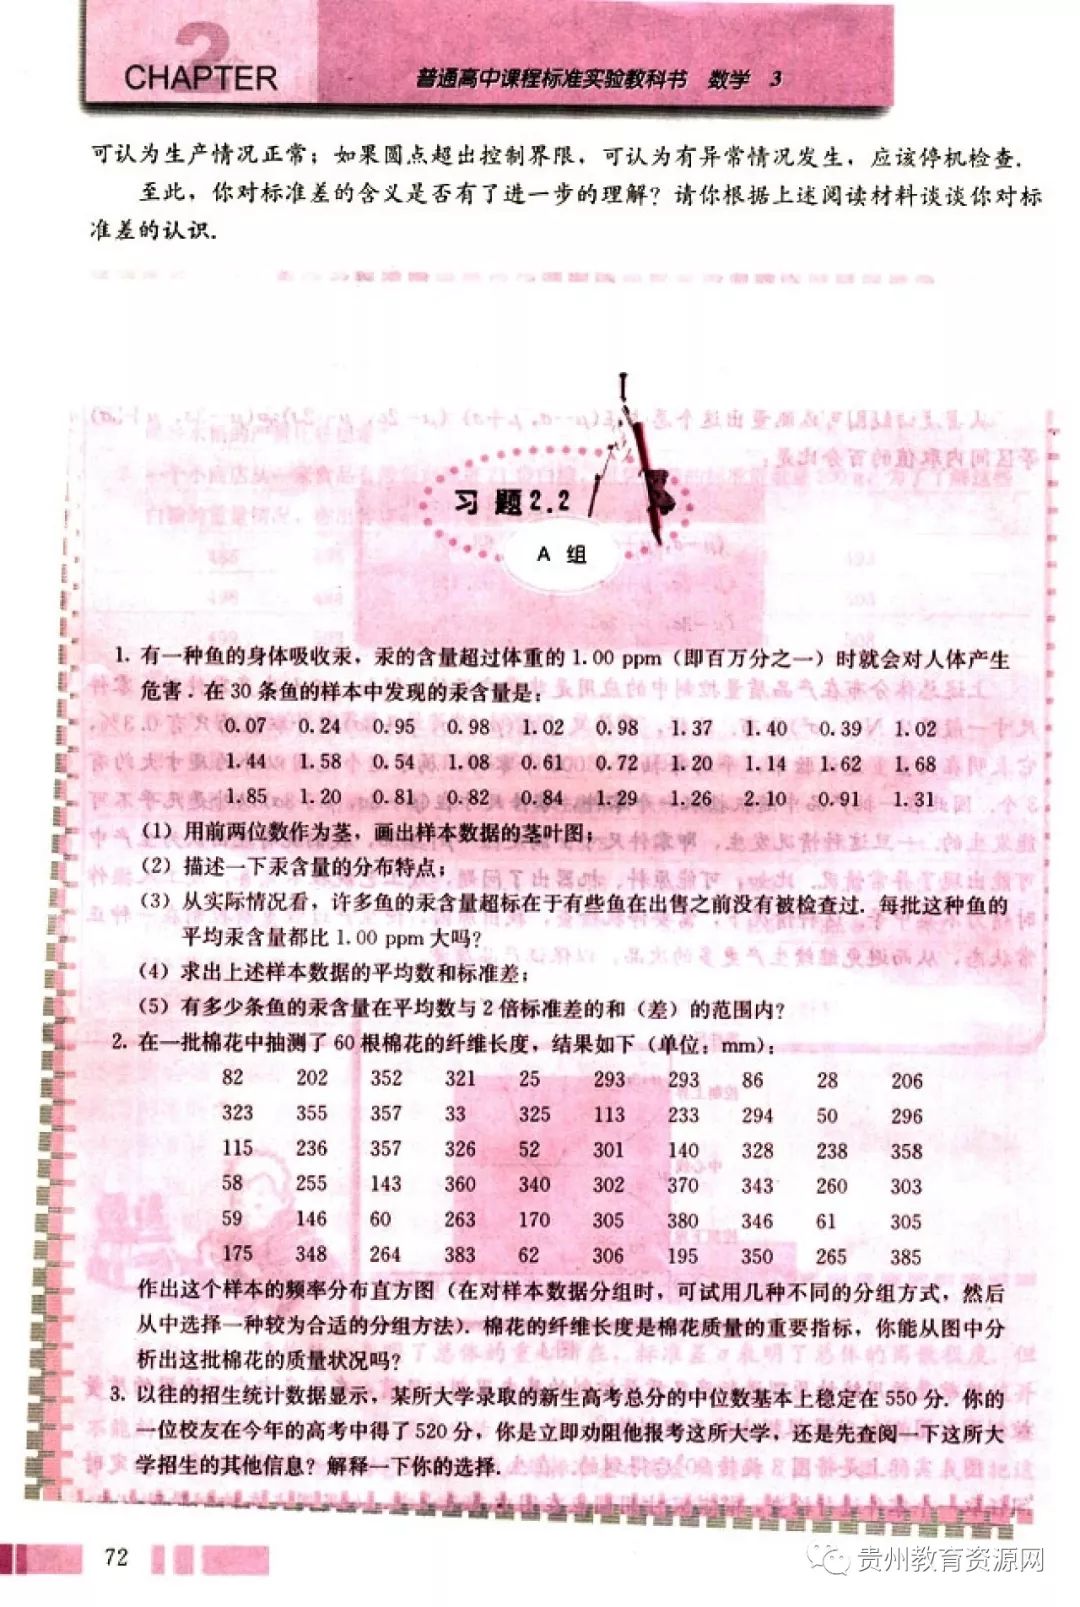 2
CHAPTER
普通高中课程标准实验教科书 数学 3
可认为生产情况正常；如果圆点超出控制界限，可认为有异常情况发生，应该停机检查.
至此，你对标准差的含义是否有了进一步的理解？请你根据上述阅读材料谈谈你对标
准差的认识.
习题2.2
A 组
1. 有一种鱼的身体吸收汞，汞的含量超过体重的 1.00 ppm（即百万分之一）时就会对人体产生
危害. 在 30 条鱼的样本中发现的汞含量是：
0.07 0.24 0.95 0.98 1.02 0.98 1.37 1.40 0.39 1.02
1.44 1.58 0.54 1.08 0.61 0.72 1.20 1.14 1.62 1.68
1.85 1.20 0.81 0.82 0.84 1.29 1.26 2.10 0.91 1.31
(1) 用前两位数作为茎，画出样本数据的茎叶图；
(2) 描述一下汞含量的分布特点；
(3) 从实际情况看，许多鱼的汞含量超标在于有些鱼在出售之前没有被检查过. 每批这种鱼的
平均汞含量都比 1.00 ppm 大吗？
(4) 求出上述样本数据的平均数和标准差；
(5) 有多少条鱼的汞含量在平均数与 2 倍标准差的和（差）的范围内？
2. 在一批棉花中抽测了 60 根棉花的纤维长度，结果如下（单位：mm）：
82 202 352 321 25 293 293 86 28 206
323 355 357 33 325 113 233 294 50 296
115 236 357 326 52 301 140 328 238 358
58 255 143 360 340 302 370 343 260 303
59 146 60 263 170 305 380 346 61 305
175 348 264 383 62 306 195 350 265 385
作出这个样本的频率分布直方图（在对样本数据分组时，可试用几种不同的分组方式，然后
从中选择一种较为合适的分组方法）. 棉花的纤维长度是棉花质量的重要指标，你能从图中分
析出这批棉花的质量状况吗？
3. 以往的招生统计数据显示，某所大学录取的新生高考总分的中位数基本上稳定在 550 分. 你的
一位校友在今年的高考中得了 520 分，你是立即劝阻他报考这所大学，还是先查阅一下这所大
学招生的其他信息？解释一下你的选择.
72
贵州教育资源网